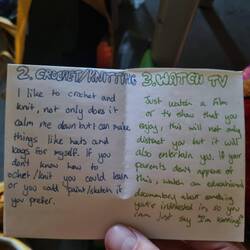 2. CROCHET/KNITTING
I like to crochet and
knit, not only does it
calm me down but I can make
things like hats and
bags for myself. If you
don't know how to
ochet/knit you could learn
or you could paint/sketch if
you prefer.
3. WATCH TV
Just watch a film
or tv show that you
enjoy, this will not only
distract you but it will
also entertain you, if your
parents don't approve of
this, watch an educational
documentary about something
you're interested in, so you
can just say I'm learning!